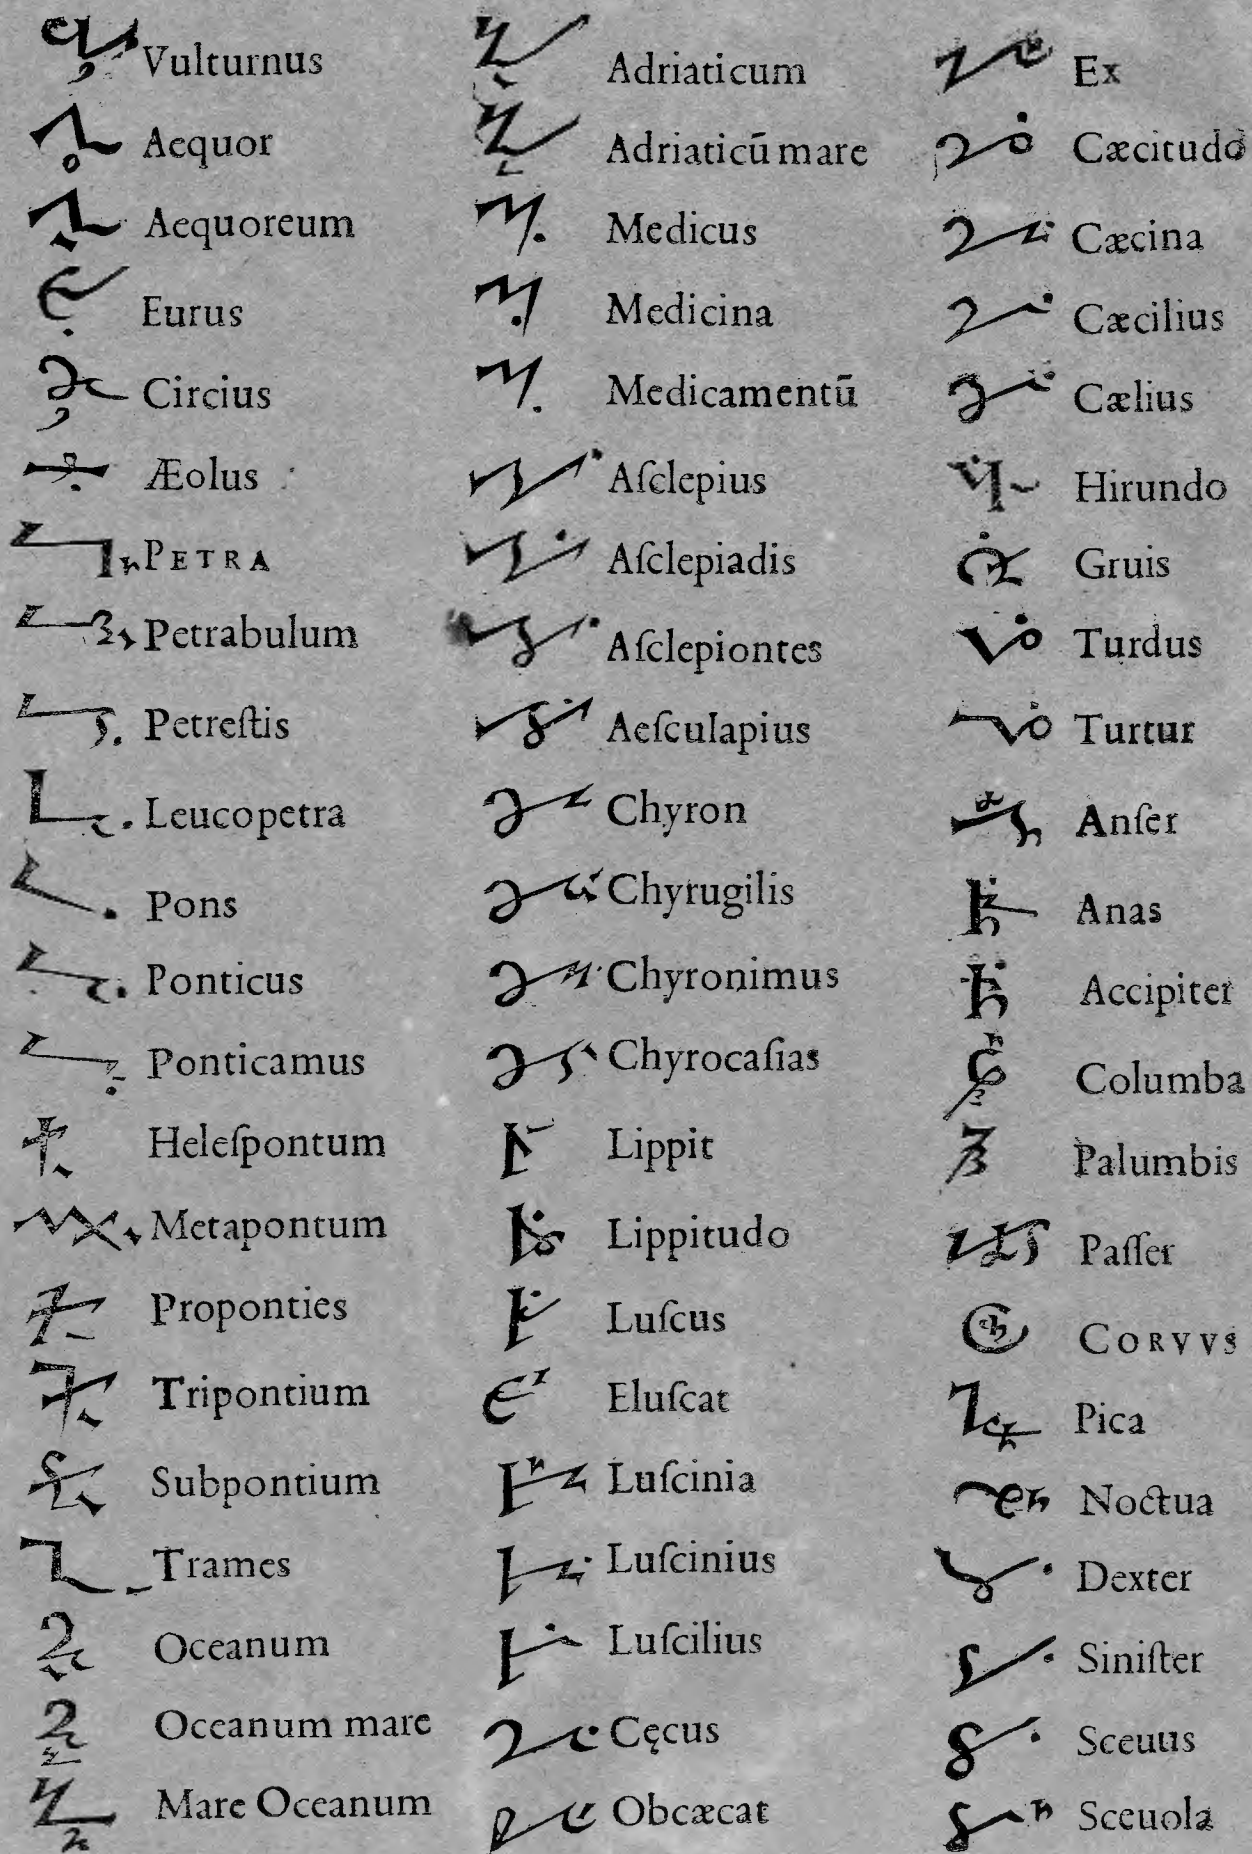 Vulturnus
Aequor
Aequoreum
Eurus
Circius
Æolus
PETRA
Petrabulum
Petreſtis
Leucopetra
Pons
Ponticus
Ponticamus
Heleſpontum
Metapontum
Proponties
Tripontium
Subpontium
Trames
Oceanum
Oceanum mare
Mare Oceanum
Adriaticum
Adriaticū mare
Medicus
Medicina
Medicamentū
Aſclepius
Aſclepiadis
Aſclepiontes
Aeſculapius
Chyron
Chyrugilis
Chyronimus
Chyrocaſias
Lippit
Lippitudo
Luſcus
Eluſcat
Luſcinia
Luſcinius
Luſcilius
Cęcus
Obcæcat
Ex
Cæcitudo
Cæcina
Cæcilius
Cælius
Hirundo
Gruis
Turdus
Turtur
Anſer
Anas
Accipiter
Columba
Palumbis
Paſſer
CORVVS
Pica
Noctua
Dexter
Siniſter
Sceuus
Sceuola